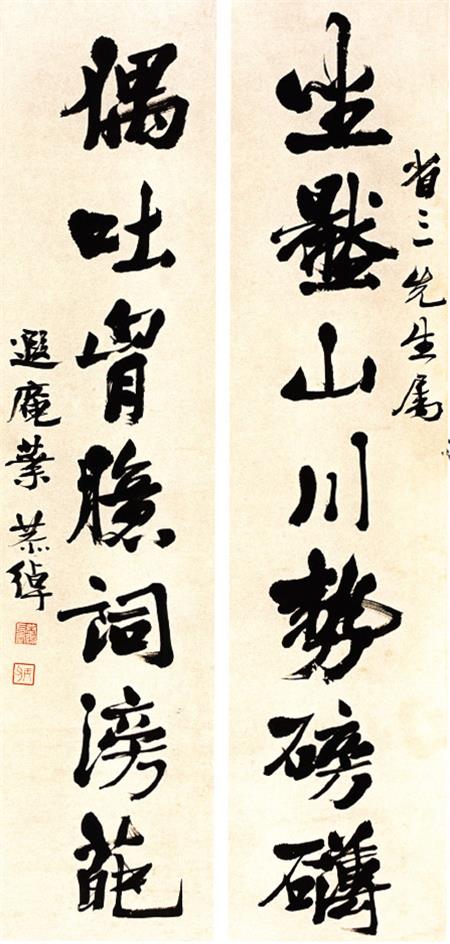 省三先生属
坐山川勢磅礴
偶吐胷臆詞滂葩
遐庵葉恭綽